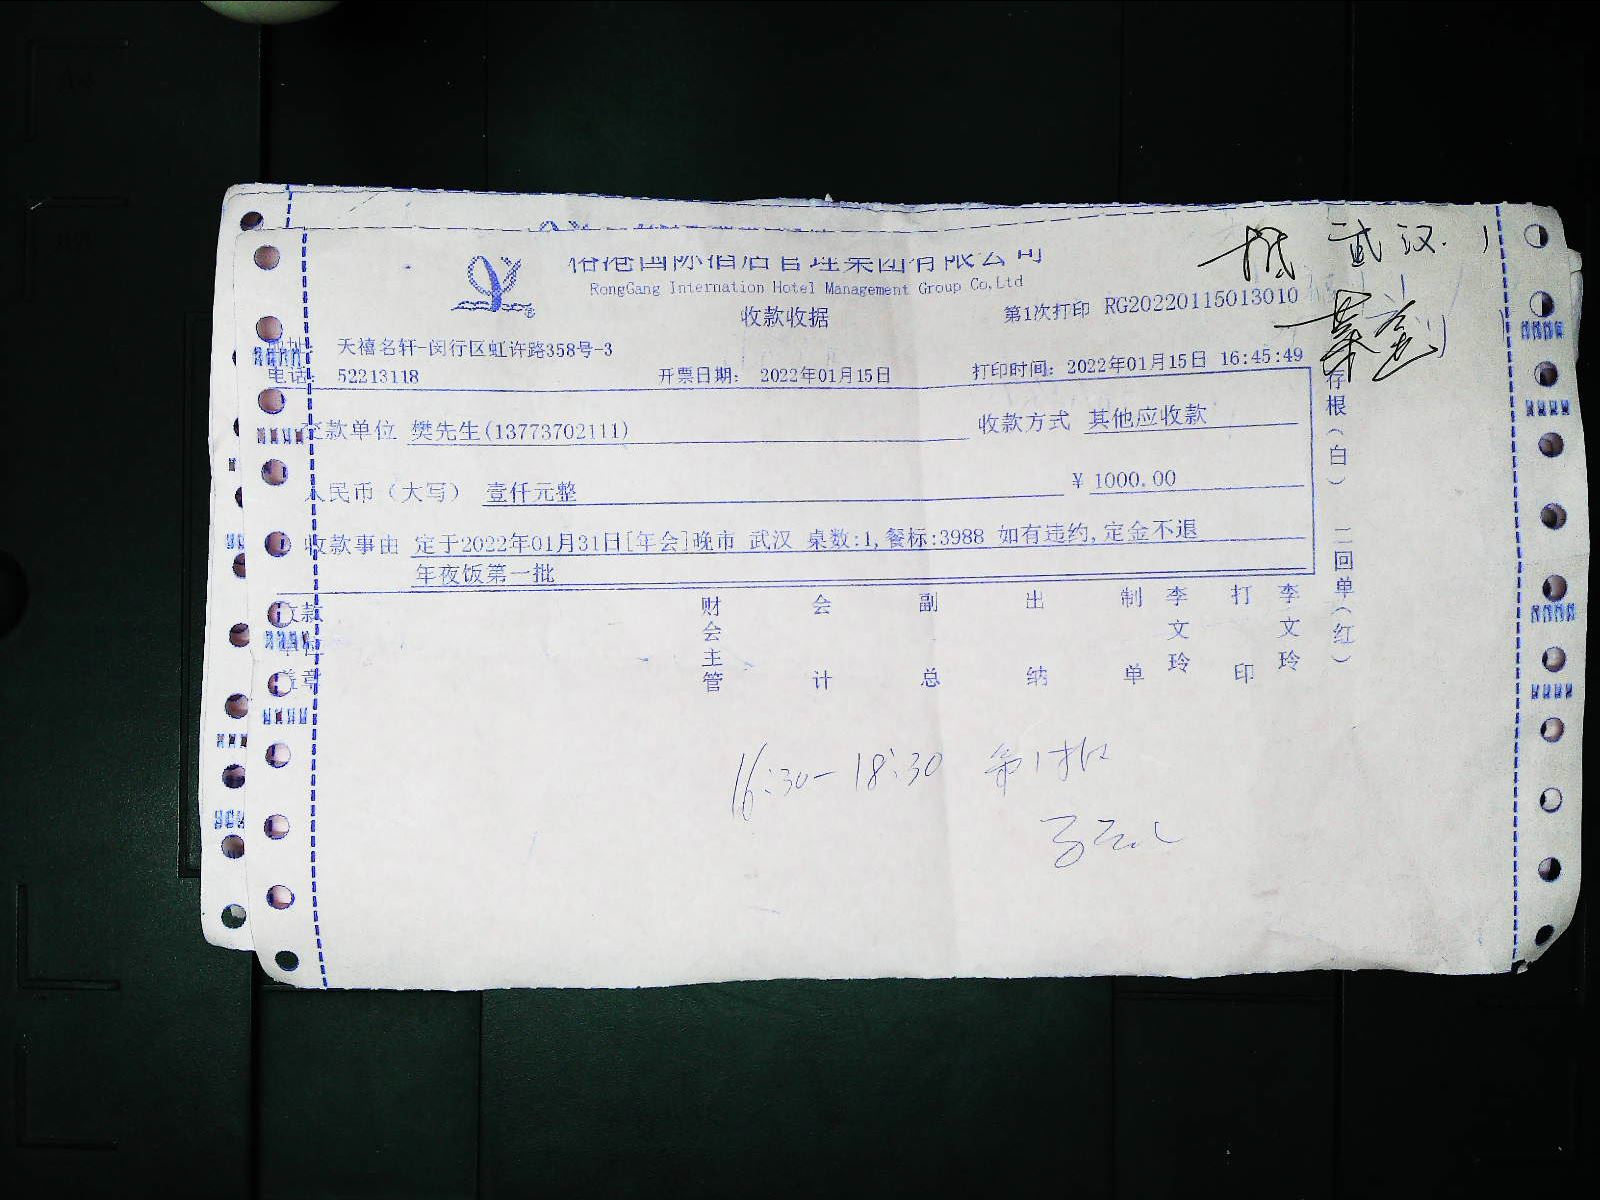 国际酒店管理集团有限公司
RongGang Internation Hotel Management Group Co,Ltd
收款收据
第1次打印 RG20220115013010
武汉
地址: 天禧名轩-闵行区虹许路358号-3
电话: 52213118 开票日期: 2022年01月15日 打印时间: 2022年01月15日 16:45:49
交款单位 樊先生(13773702111) 收款方式 其他应收款
人民币(大写) 壹仟元整 ¥ 1000.00
收款事由 定于2022年01月31日[年会]晚市 武汉 桌数:1,餐标:3988 如有违约,定金不退
年夜饭第一批
存根(白) 二回单(红)
收款单位盖章 财会主管 会计 副总 出纳 制单 李文玲 打印 李文玲
16:30-18:30 第1批